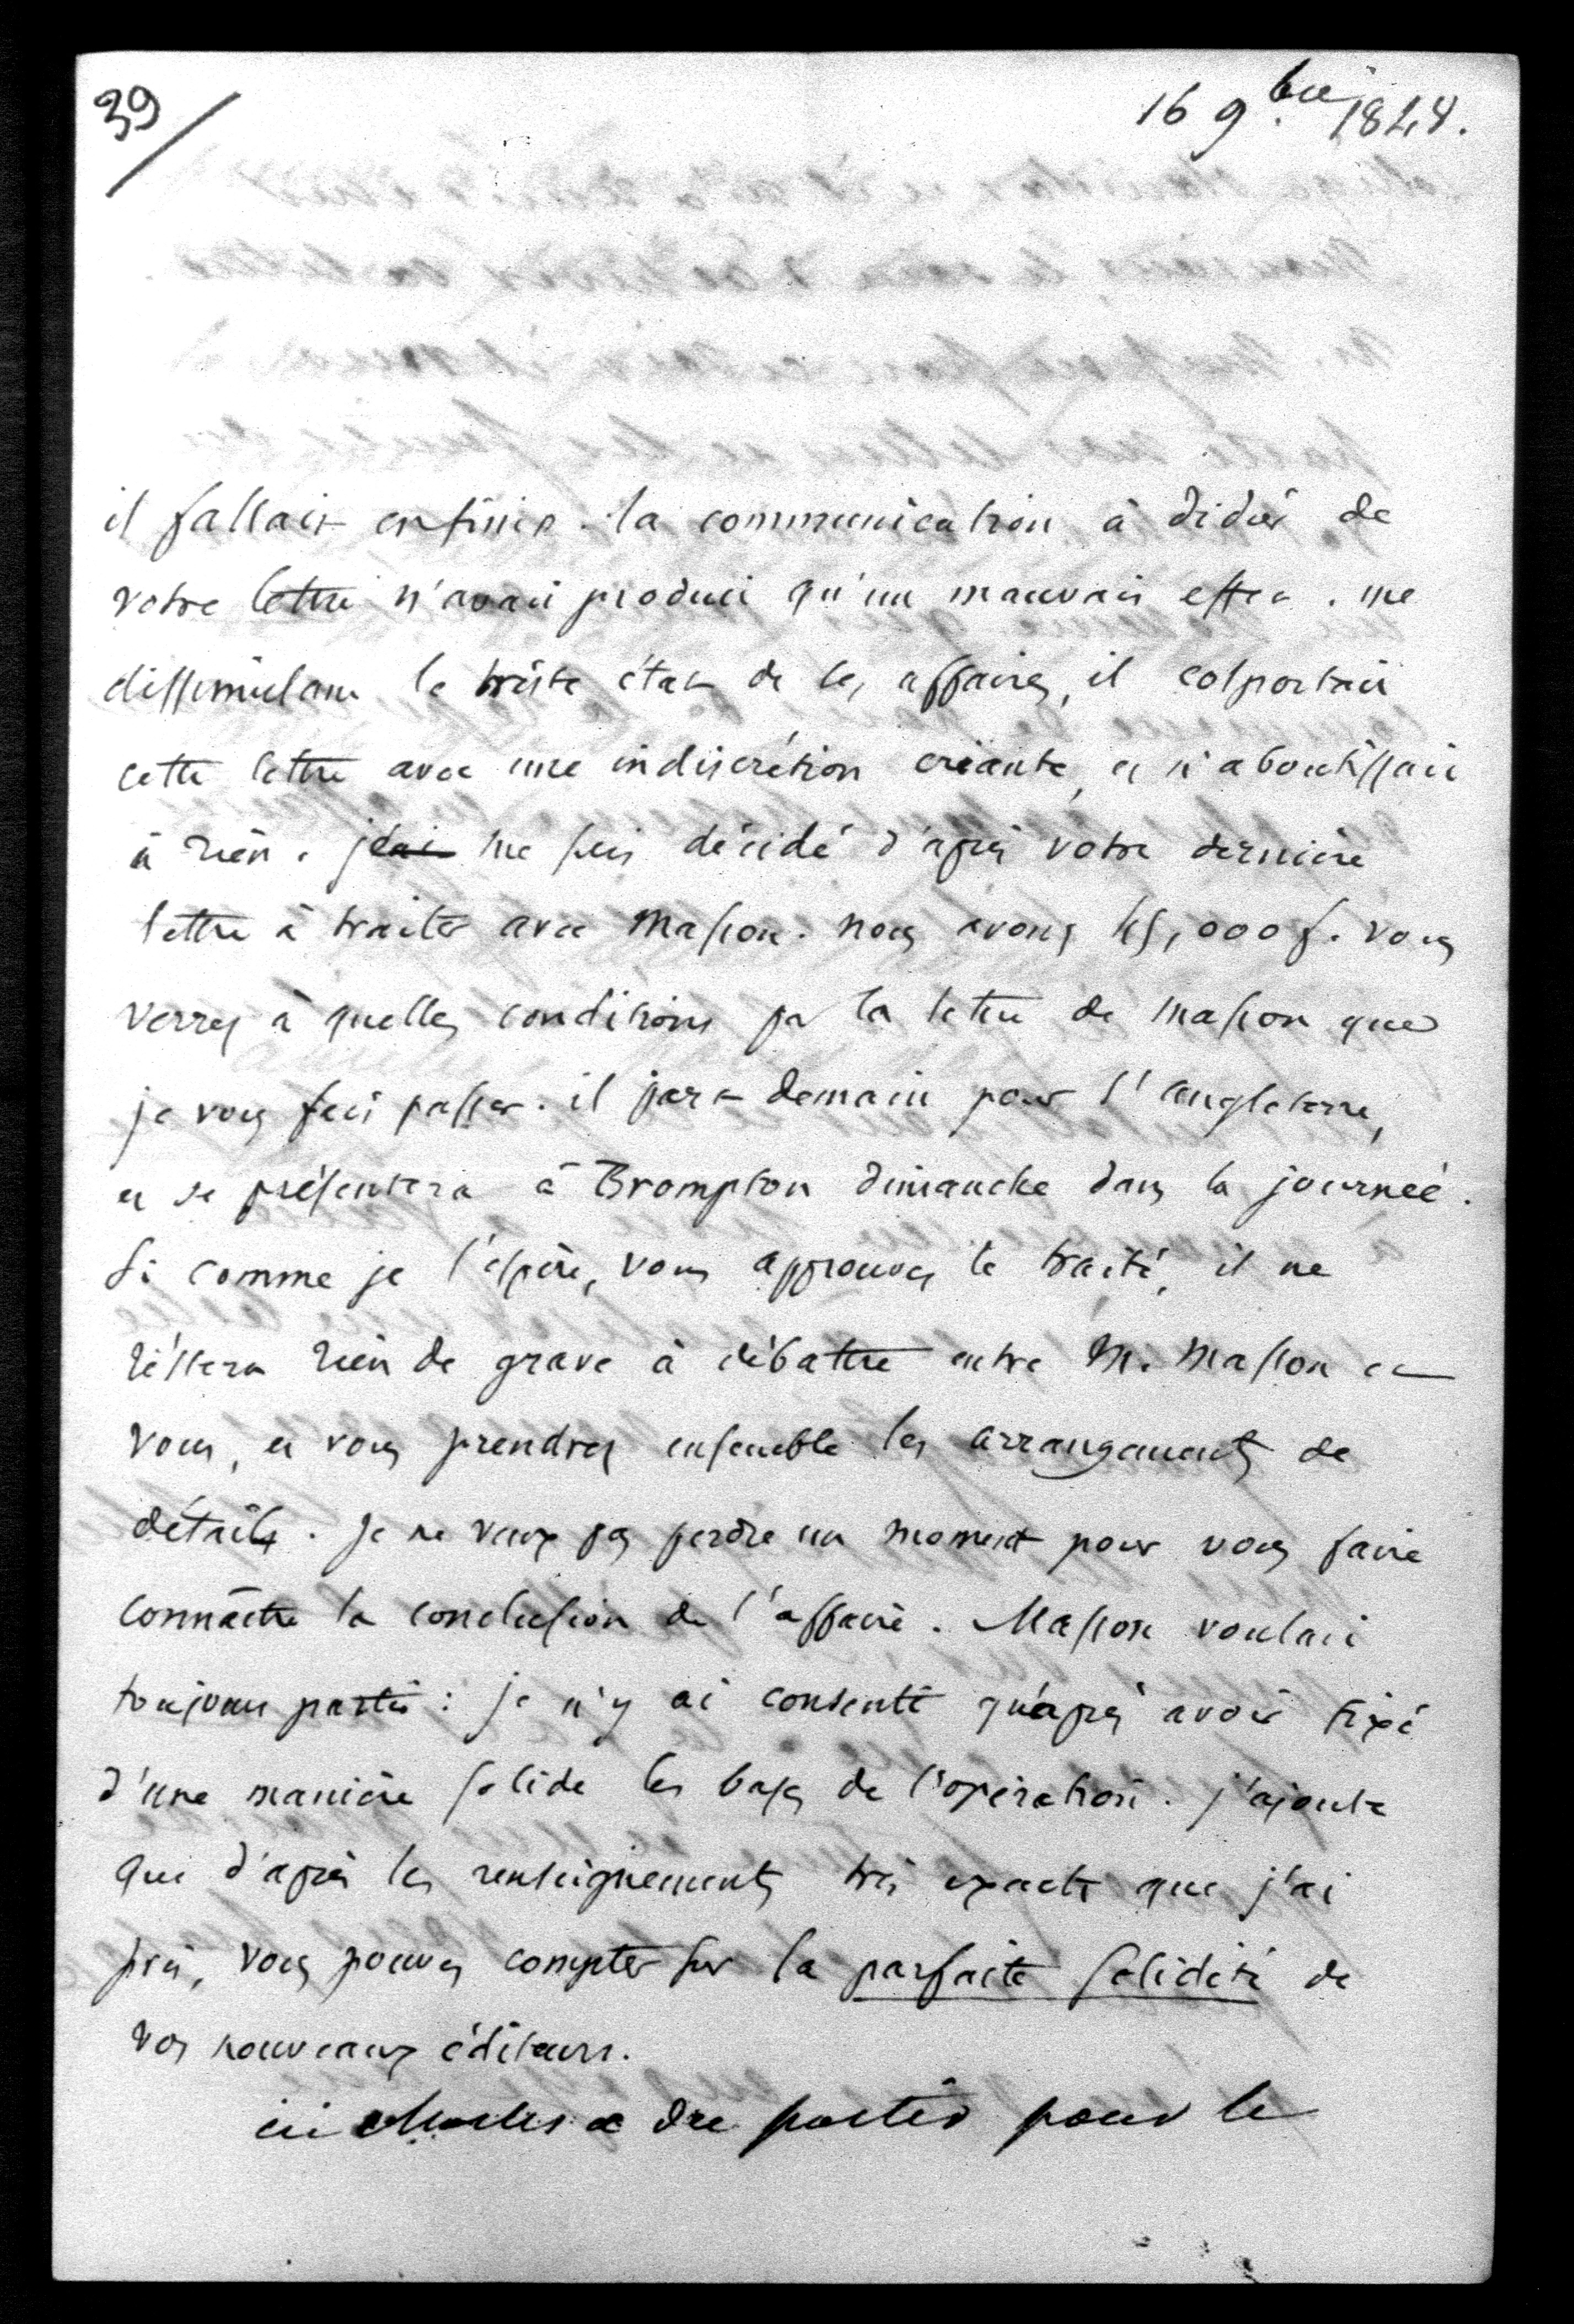 39
16 9.bre 1848.
il fallait en finir. la communication à didier de
votre lettre n'avait produit qu'un mauvais effet. me
dissimulant le triste état de ses affaires, il colportait
cette lettre avec une indiscrétion criante, et n'aboutissait
à rien. j'ai me suis décidé d'après votre dernière
lettre à traiter avec Masson. nous avons 45,000 f. vous
verrez à quelles conditions par la lettre de masson que
je vous fais passer. il part demain pour l'angleterre,
et se présentera à Brompton dimanche dans la journée.
Si comme je l'espère, vous approuvez le traité, il ne
réstera rien de grave à débattre entre M. Masson et
vous, et vous prendrez ensemble les arrangements de
détails. Je ne veux pas perdre un moment pour vous faire
connaître la conclusion de l'affaire. Masson voulait
toujours partir : je n'y ai consenti qu'après avoir fixé
d'une manière solide les bases de l'opération. j'ajoute
que d'après les renseignements très exacts que j'ai
pris, vous pouvez compter sur la parfaite solidité de
vos nouveaux éditeurs.
ici partir pour le